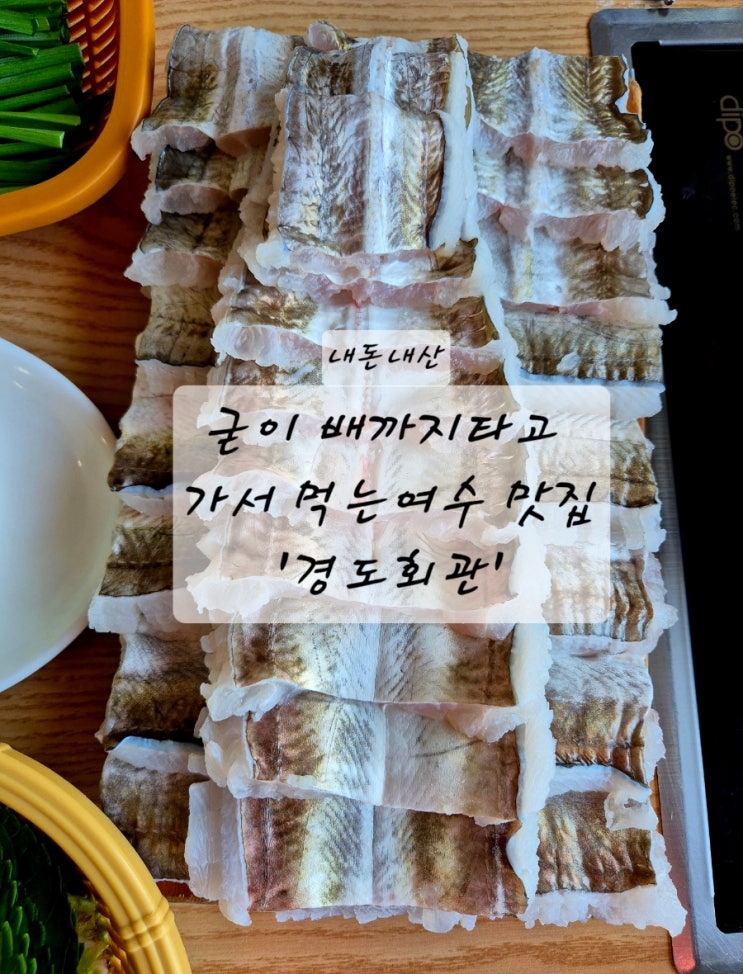 내돈내산
굳이 배까지타고
가서 먹는여수 맛집
'경도회관'
dipo
www.dipoelec.com